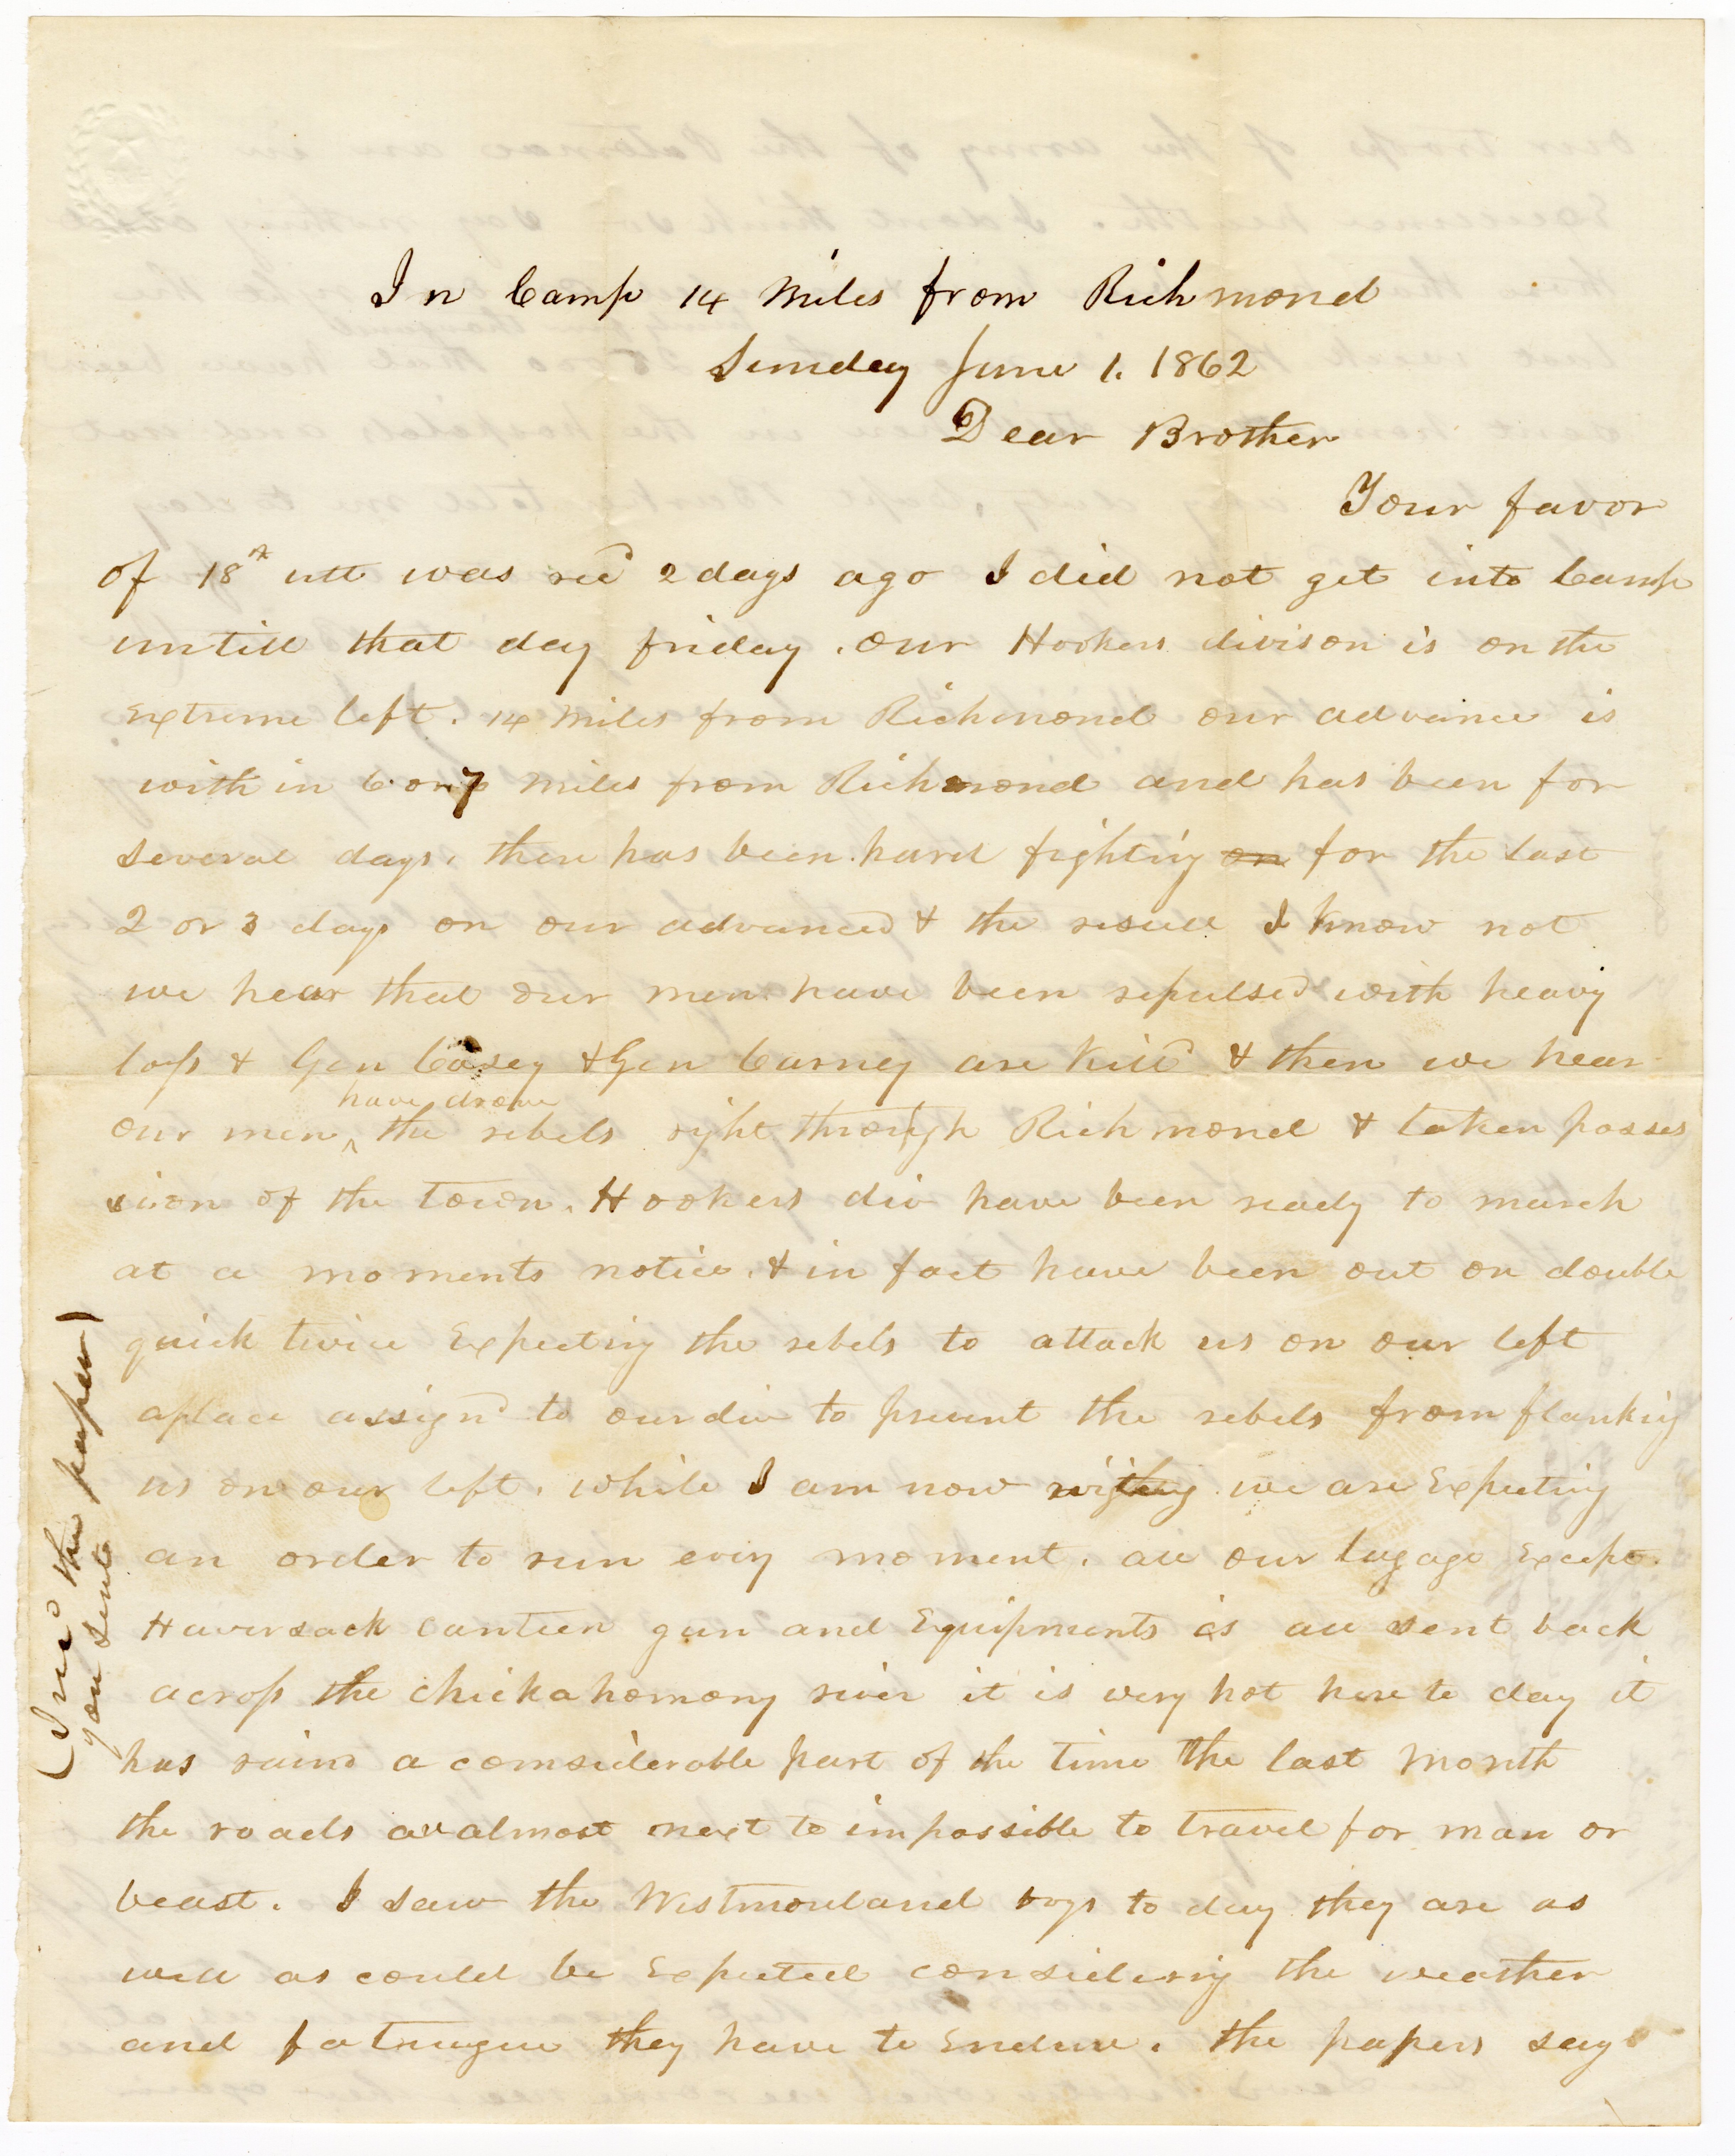 In Camp 14 Miles from Richmond
Sunday June 1. 1862
Dear Brother
Your favor
of 18th ult was recd 2 days ago I did not get into Camp
untill that day friday. our Hookers divison is on the
Extreme left. 14 Miles from Richmond our advance is
with in 6 or 7 Miles from Richmond and has been for
several days, there has been hard fighting on for the last
2 or 3 days on our advanced & the result I know not
we hear that our men have been repulsed with heavy
loss & Gen Casey & Gen Carney are kill'd & then we hear
have drove
our men ^ the rebels right through Richmond & taken posses
sion of the town. Hookers div have been ready to march
at a moments notice. & in fact have been out on double
quick twice Expecting the rebels to attack us on our left
aplace assign'd to our div to prevent the rebels from flankig
us on our left. while I am now we are Expecting
an order to run every moment. all our lugage Except
Haversack canteen gun and Equipments is all sent back
across the chickahomony river it is very hot here to day it
has raind a comsiderable part of the time the last Month
the roads are almost next to impossible to travel for man or
beast. I saw the Westmoreland boys to day they are as
well as could be Expected considering the weather
and fatuegue they have to Endure. the papers say
(I recd the paper)
you sent